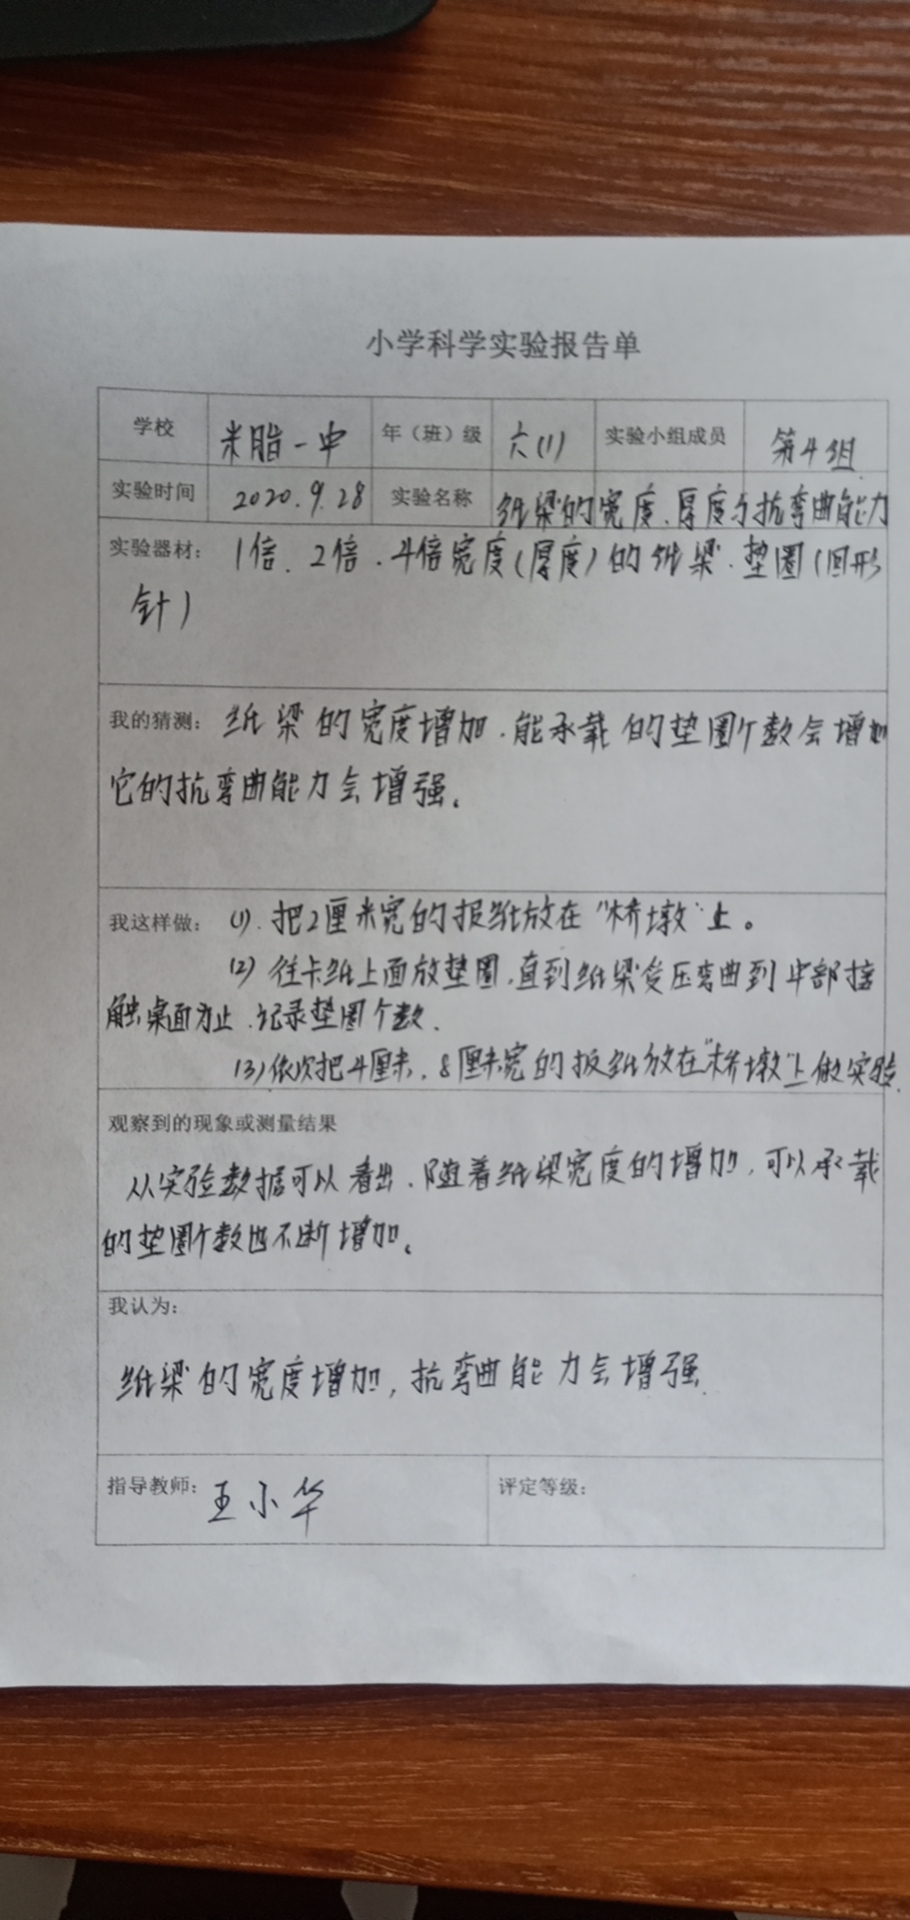 小学科学实验报告单
学校 米脂一中 年（班）级 六(1) 实验小组成员 第4组
实验时间 2020.9.28 实验名称 纸梁的宽度、厚度与抗弯曲能力
实验器材： 1倍、2倍、4倍宽度(厚度)的纸梁、垫圈(回形
针)
我的猜测： 纸梁的宽度增加，能承载的垫圈个数会增加
它的抗弯曲能力会增强。
我这样做： (1). 把2厘米宽的报纸放在“桥墩”上。
(2) 往卡纸上面放垫圈，直到纸梁受压弯曲到中部接
触桌面为止，记录垫圈个数.
(3)依次把4厘米、8厘米宽的报纸放在“桥墩”上做实验.
观察到的现象或测量结果
从实验数据可以看出，随着纸梁宽度的增加，可以承载
的垫圈个数也不断增加。
我认为：
纸梁的宽度增加，抗弯曲能力会增强.
指导教师： 王小华 评定等级：